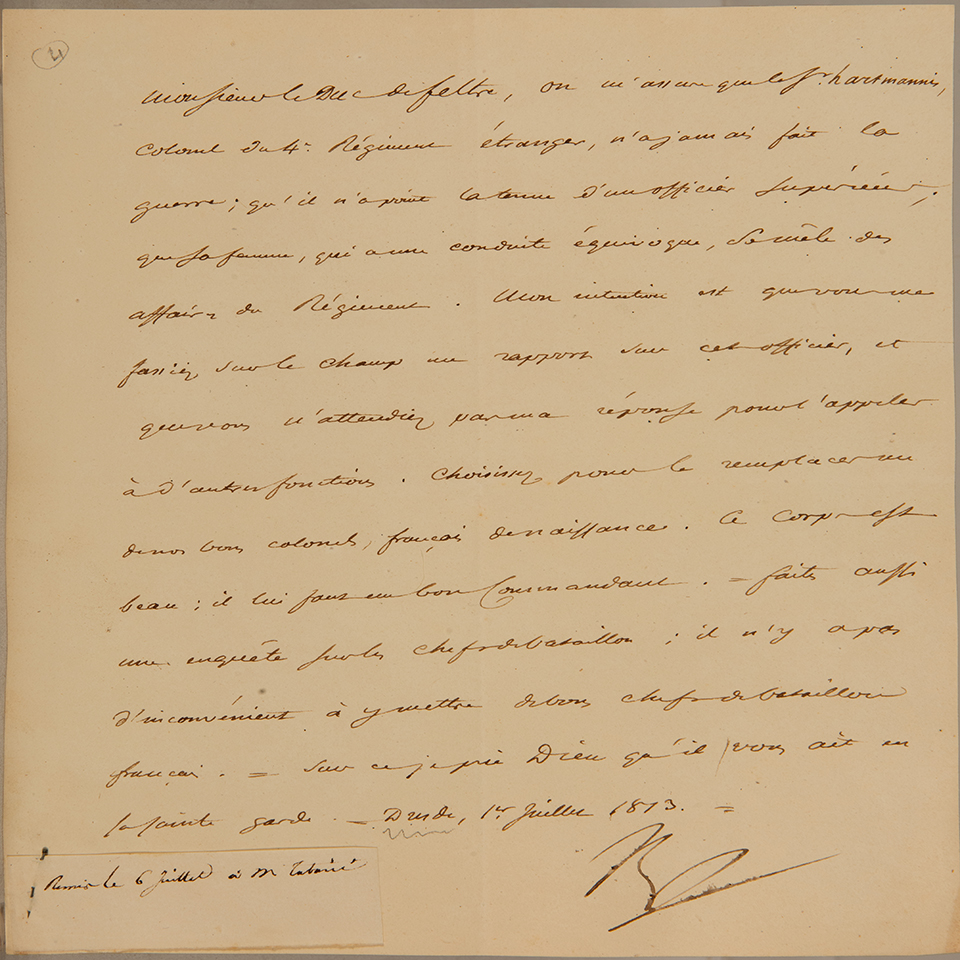 4
Monsieur le Duc de feltre, on m'assure que le Sr. hartmannis,
colonel du 4e. Régiment étranger, n'a jamais fait la
guerre; qu'il n'a point la tenue d'un officier supérieur;
que sa femme, qui a une conduite équivoque, se mêle des
affaires du Régiment. Mon intention est que vous me
fassiez sur le champ un rapport sur cet officier, et
que vous n'attendiez pas ma réponse pour l'appeler
à d'autres fonctions. Choisissez pour le remplacer un
de nos bons colonels, français de naissance. Ce Corps est
beau; il lui faut un bon Commandant. = faites aussi
une enquête sur les chefs de bataillon; il n'y a pas
d'inconvénient à y mettre de bons chefs de bataillon
français. = Sur ce je prie Dieu qu'il vous ait en
sa sainte garde = Dresde, 1er. Juillet 1813. =
Remis le 6 Juillet à M